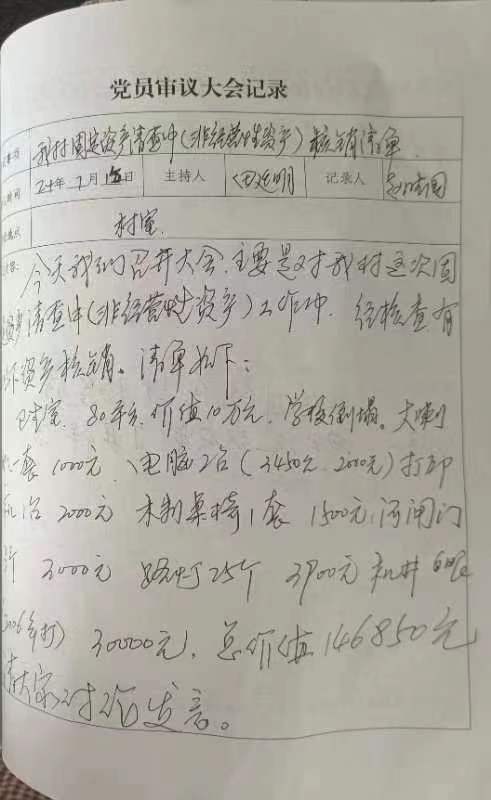 党员审议大会记录
我村固定资产清查中(非经营性资产)核销清单
时间 21年7月15日 主持人 记录人
地点 村室
今天我们召开大会、主要是对我村这次固
清查中(非经营性资产)工作中. 经核查有
下资产核销。清单如下:
卫生室. 80平方. 价值10万元. 学校倒塌。大喇
一套 1000元、电脑2台(3450元. 2000元)打印
机1台 2000元 木制桌椅1套 1500元 河闸门
3000元 路灯25个 3900元 机井6眼
2006年打) 30000元. 总价值146850元
请大家讨论发言。